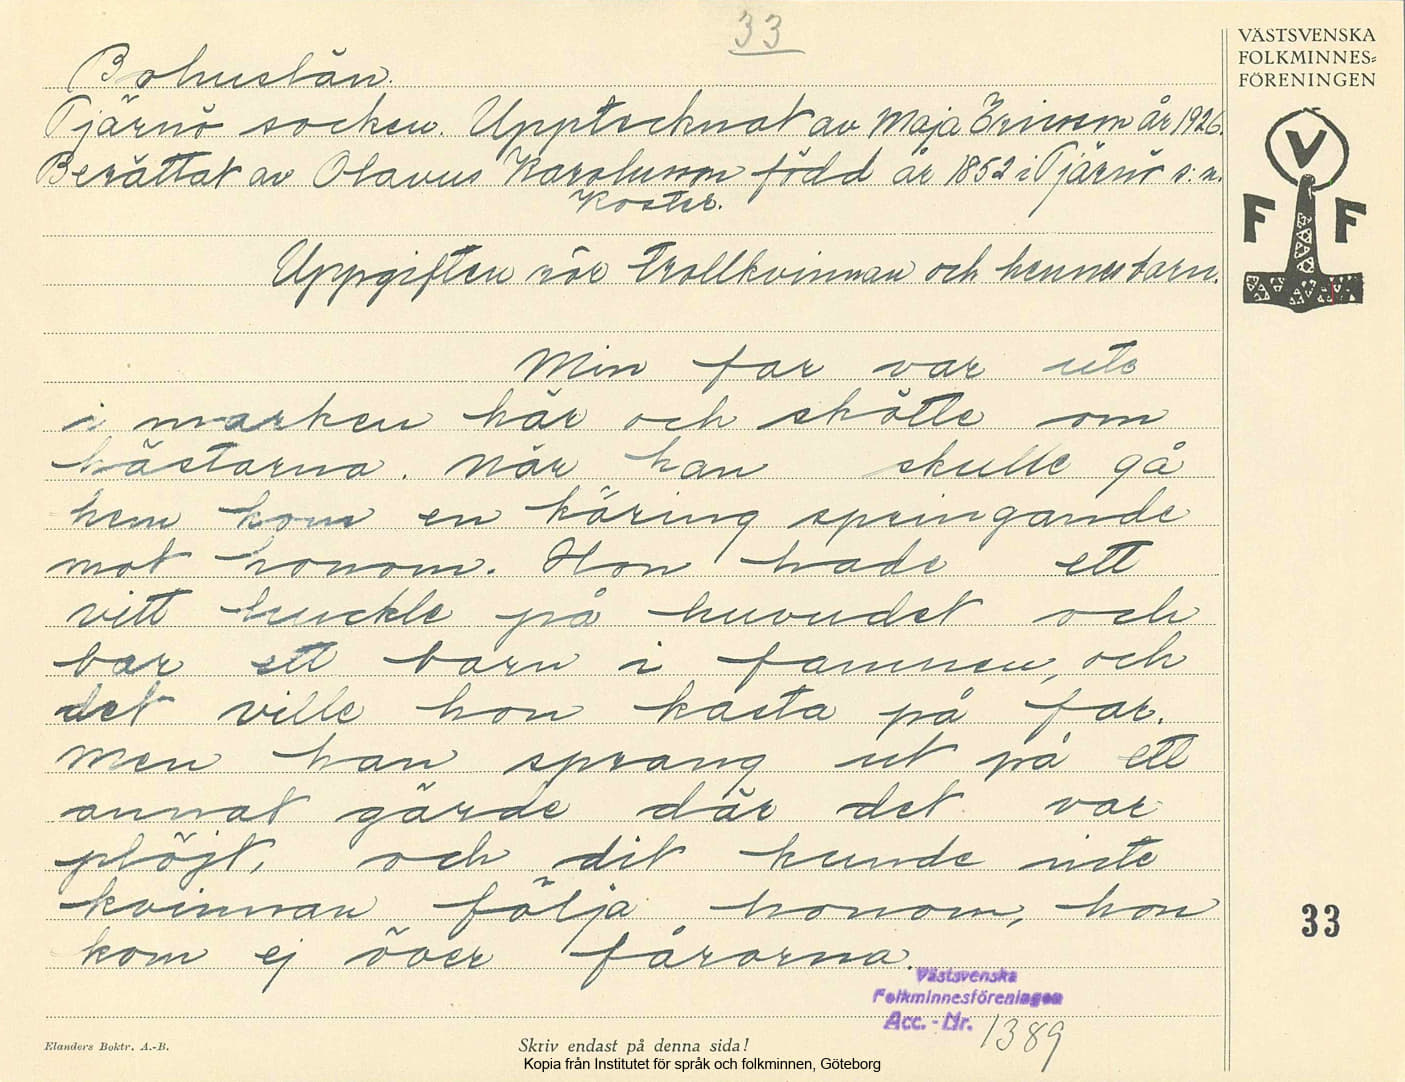 33
VÄSTSVENSKA
FOLKMINNES=
FÖRENINGEN
Bohuslän.
Tjärnö socken. Upptecknat av Maja Ericson år 1926.
Berättat av Olavus Karolusson född år 1852 i Tjärnö s:n.
Koster.
V
F F
Uppgiften rör trollkvinnan och hennes barn.
Min far var ute
i marken här och skötte om
hästarna. När han skulle gå
hem kom en käring springande
mot honom. Hon hade ett
vitt huckle på huvudet och
bar ett barn i famnen, och
det ville hon kasta på far.
Men han sprang ut på ett
annat gärde där det var
plöjt, och dit kunde inte
kvinnan följa honom, hon
kom ej över fårorna.
33
Västsvenska
Folkminnesföreningen
Acc. - Nr. 1389
Elanders Boktr. A.-B.
Skriv endast på denna sida!
Kopia från Institutet för språk och folkminnen, Göteborg